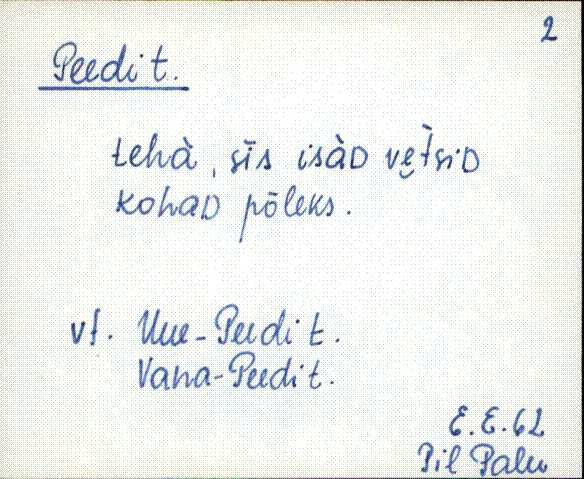 2
Peedi t.
tehà, sīs isàD vè̮t̀siD
kohaD pōleks.
vt. Uue-Peedi t.
Vana-Peedi t.
E.E.62
Pil Palu